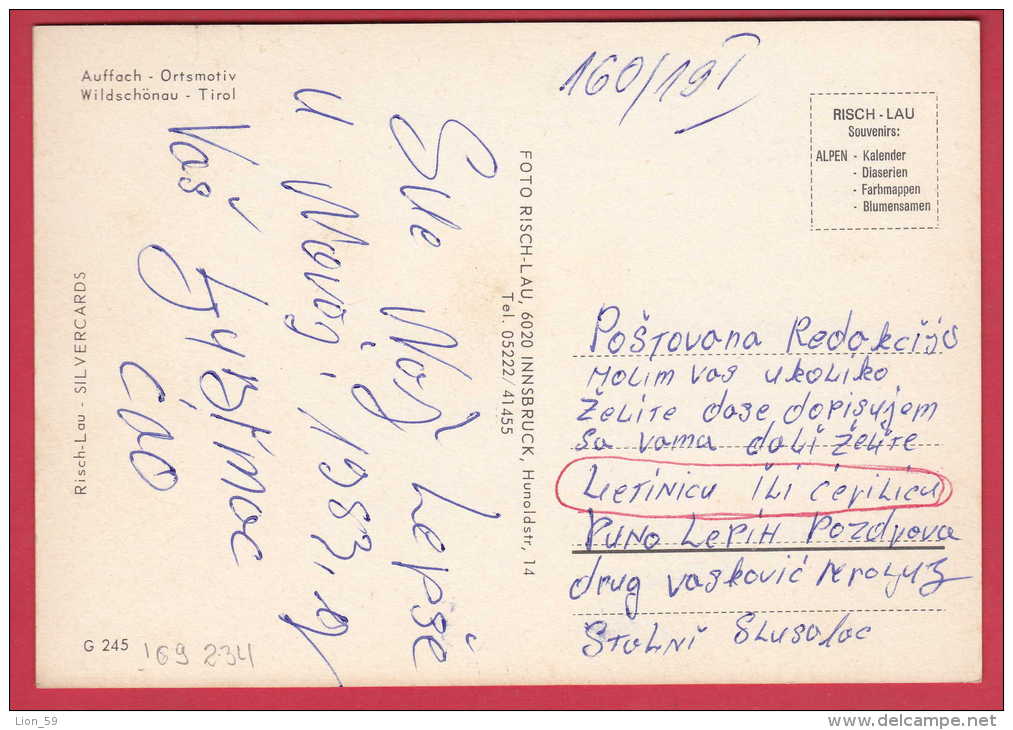 Auffach - Ortsmotiv
Wildschönau - Tirol
160/19
RISCH - LAU
Souvenirs:
ALPEN - Kalender
- Diaserien
- Farbmappen
- Blumensamen
Sve Naj Lepše
u Novoj. 1983.
Vaš
ćao
FOTO RISCH-LAU, 6020 INNSBRUCK, Hunoldstr, 14
Tel. 05222/41455
Risch-Lau - SILVERCARDS
G 245
169 234
Poštovana Redakcijo
molim vas ukoliko
želite dase dopisujem
sa vama dali želite
Lietinicu ili ćerilicu
Puno Lepih Pozdrova
drug Vasković
Štolni Slusaloc
Lion_59
www.delcampe.net